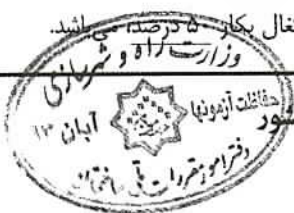 غال بکار ۵۰ درصد می‌باشد.
وزارت راه و شهرسازی
حفاظت آزمونها
آبان ۹۳
شور
دفتر امور مقررات ملی ساختمان